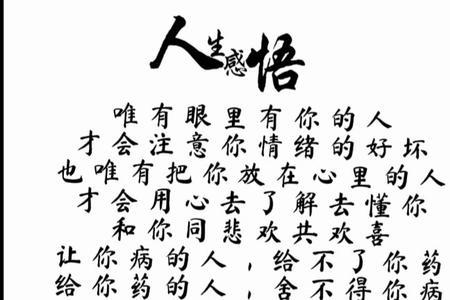 人生感悟
唯有眼里有你的人
才会注意你情绪的好坏
也唯有把你放在心里的人
才会用心去了解去懂你
和你同悲欢共欢喜
让你病的人，给不了你药
给你药的人，舍不得你病